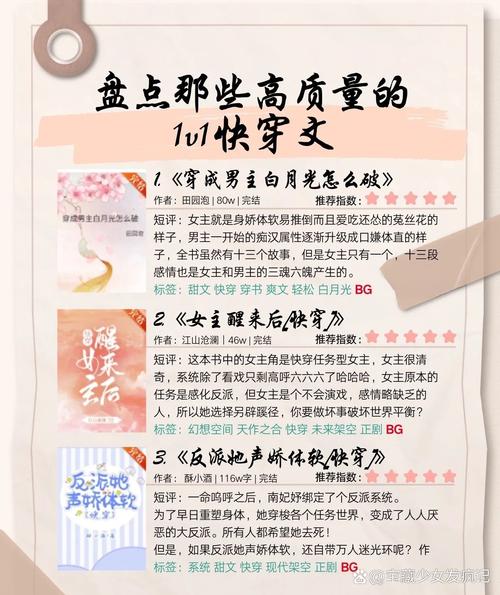 盘点那些高质量的
1v1快穿文
完结
穿成男主白月光怎么破
田园泡
1.《穿成男主白月光怎么破》
作者：田园泡 | 80w | 完结 推荐指数：
短评：女主就是身娇体软易推倒而且爱吃还怂的菟丝花的
样子，男主一开始的痴汉属性逐渐升级成口嫌体直的样
子，全书虽然有十三个故事，但是女主只有一个，十三段
感情也是女主和男主的三魂六魄产生的。
标签：甜文 快穿 穿书 爽文 轻松 白月光 BG
完结
女主醒来后
2.《女主醒来后[快穿]》
作者：江山沧澜 | 46w | 完结 推荐指数：
短评：这本书中的女主角是快穿任务型女主，女主很清
奇，系统除了看戏只剩高呼六六六了哈哈哈，女主原本的
任务是感化反派，但女主是个不会演戏，感情略缺乏的
人，所以她选择另辟蹊径，你要做坏事破坏世界平衡？
标签：幻想空间 天作之合 快穿 未来架空 正剧 BG
完结
反派她
声娇体软
[快穿]
3.《反派她声娇体软[快穿]》
作者： 酥小酒 | 116w字 | 完结 推荐指数：
短评：一命呜呼之后，南妃妤绑定了个反派系统。
为了早日重塑身体，她穿梭各个任务世界，变成了人人厌
恶的大反派。所有人都希望她去死！
但是，如果反派她声娇体软，还自带万人迷光环呢？ 作
标签：系统 甜文 快穿 现代架空 正剧 BG
宝藏少女发疯记